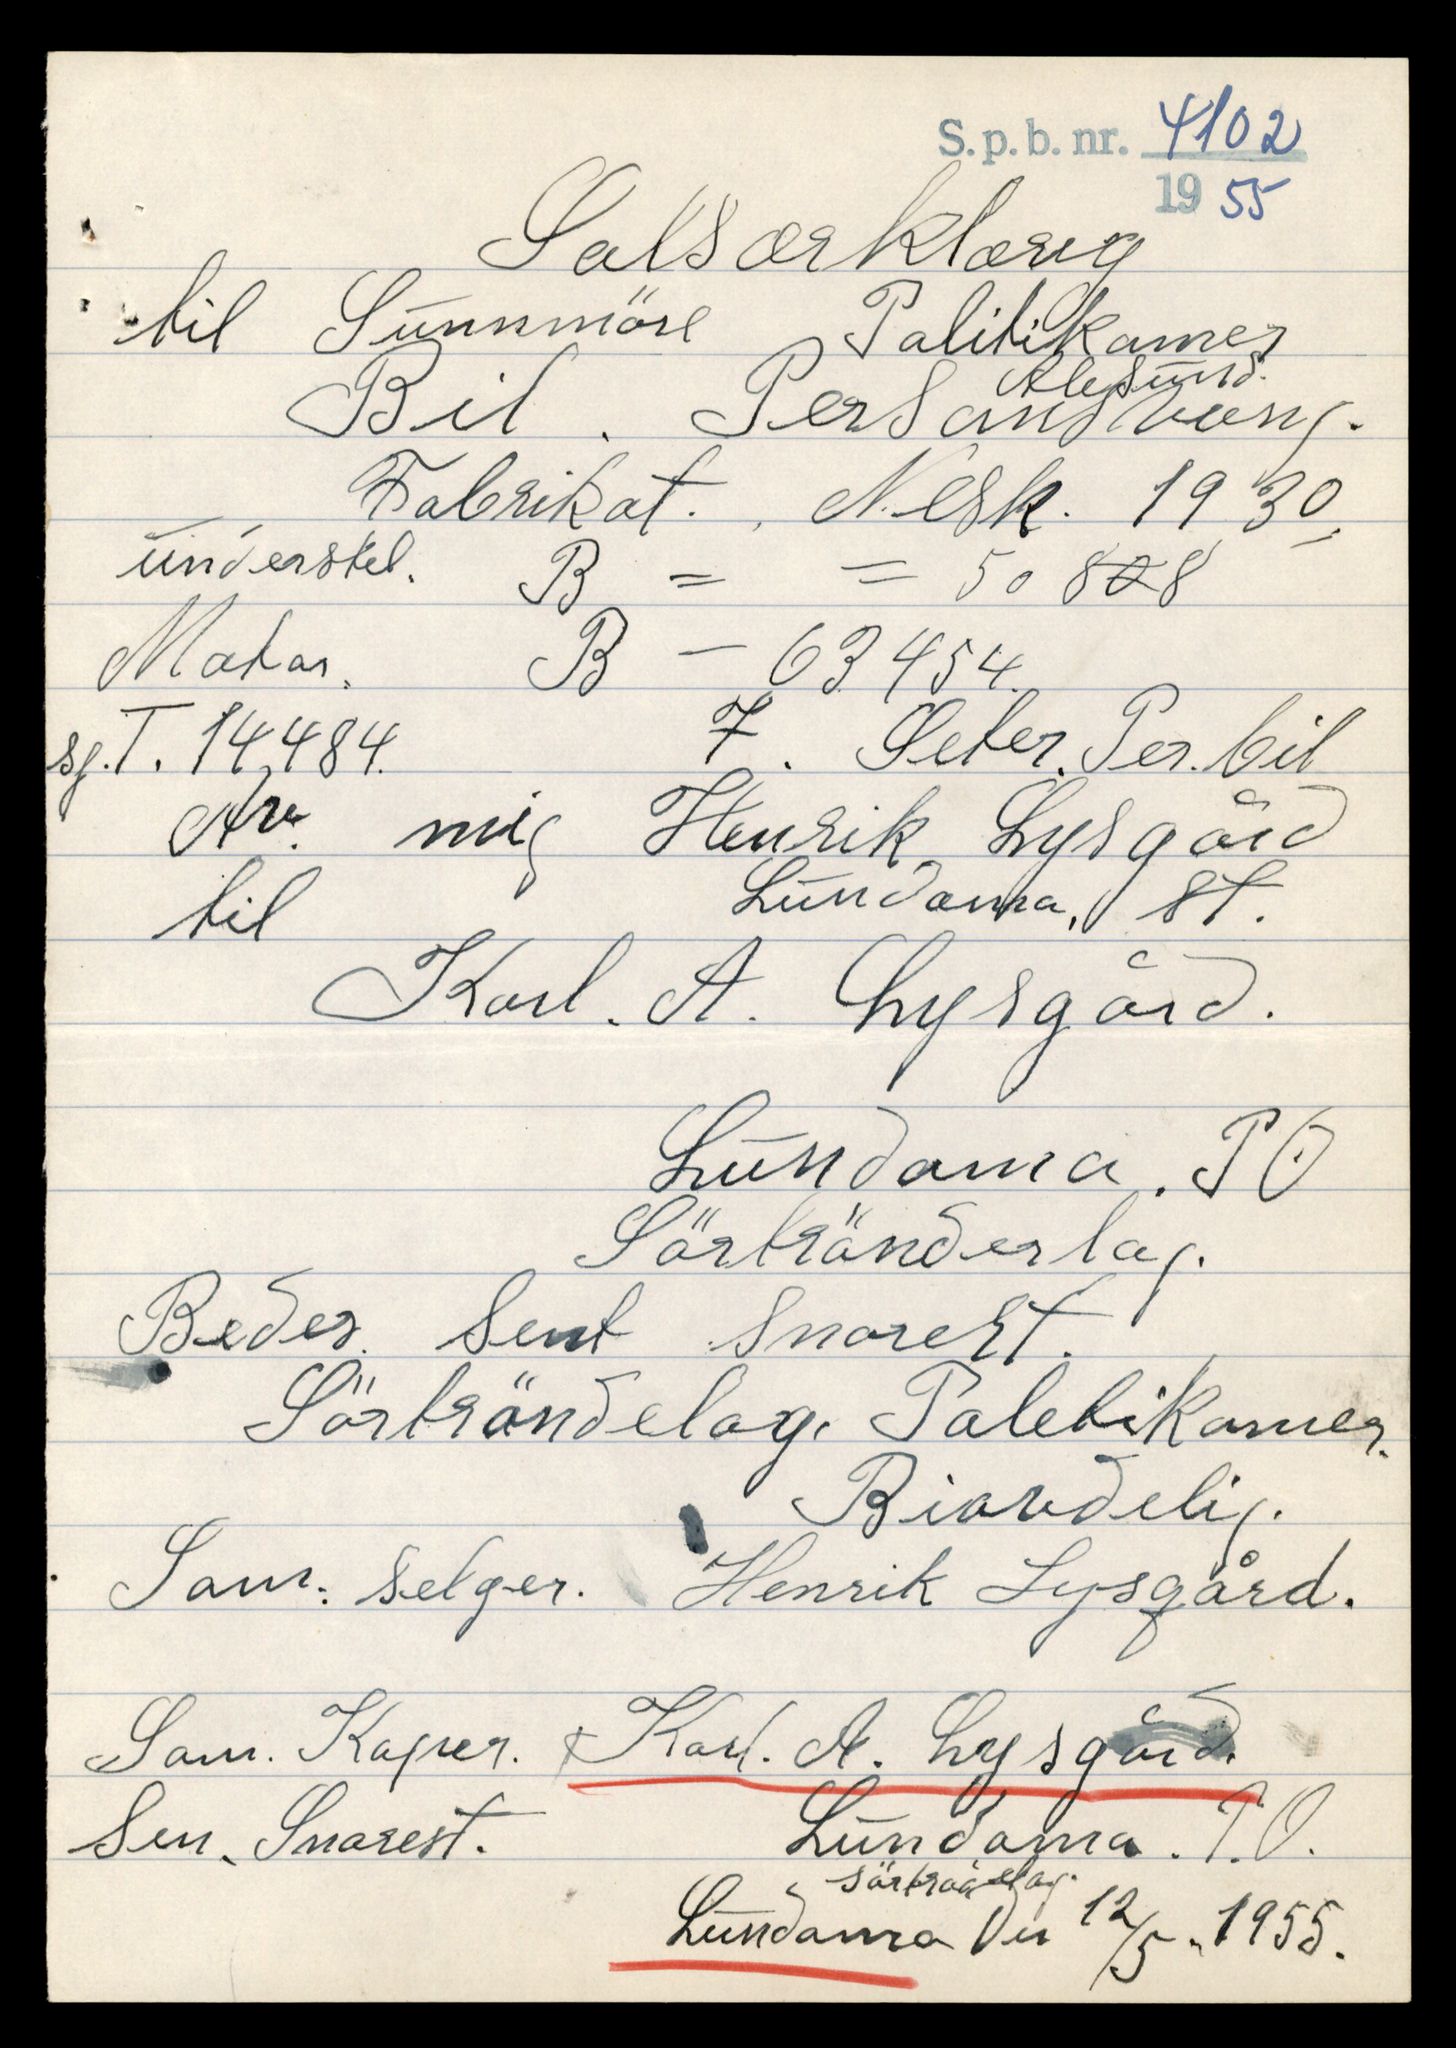 S.p.b. nr. 4102
1955
Salsærklærig
til Sunnmöre Palitikamer
Alesund.
Bil. Persansvong.
Fabrikat. Nesk. 1930.
understel. B = = 50 828
Motor. B - 63454.
sg. T. 14484. 7. Seter. Per. bil
Av. mig Henrik Lysgård
til Lundama, st.
Karl. A. Lysgård.
Lundama. PO
Sörtrönderlag.
Beder. Sent snarest.
Sörtröndelag. Paletikamer.
Biavdelig.
Som. Selger. Henrik Lysgård.
Som. Køper. x Karl. A. Lysgård.
Sen. Snarest. Lundama. P.O.
Lundamo Den 12/5. 1955.